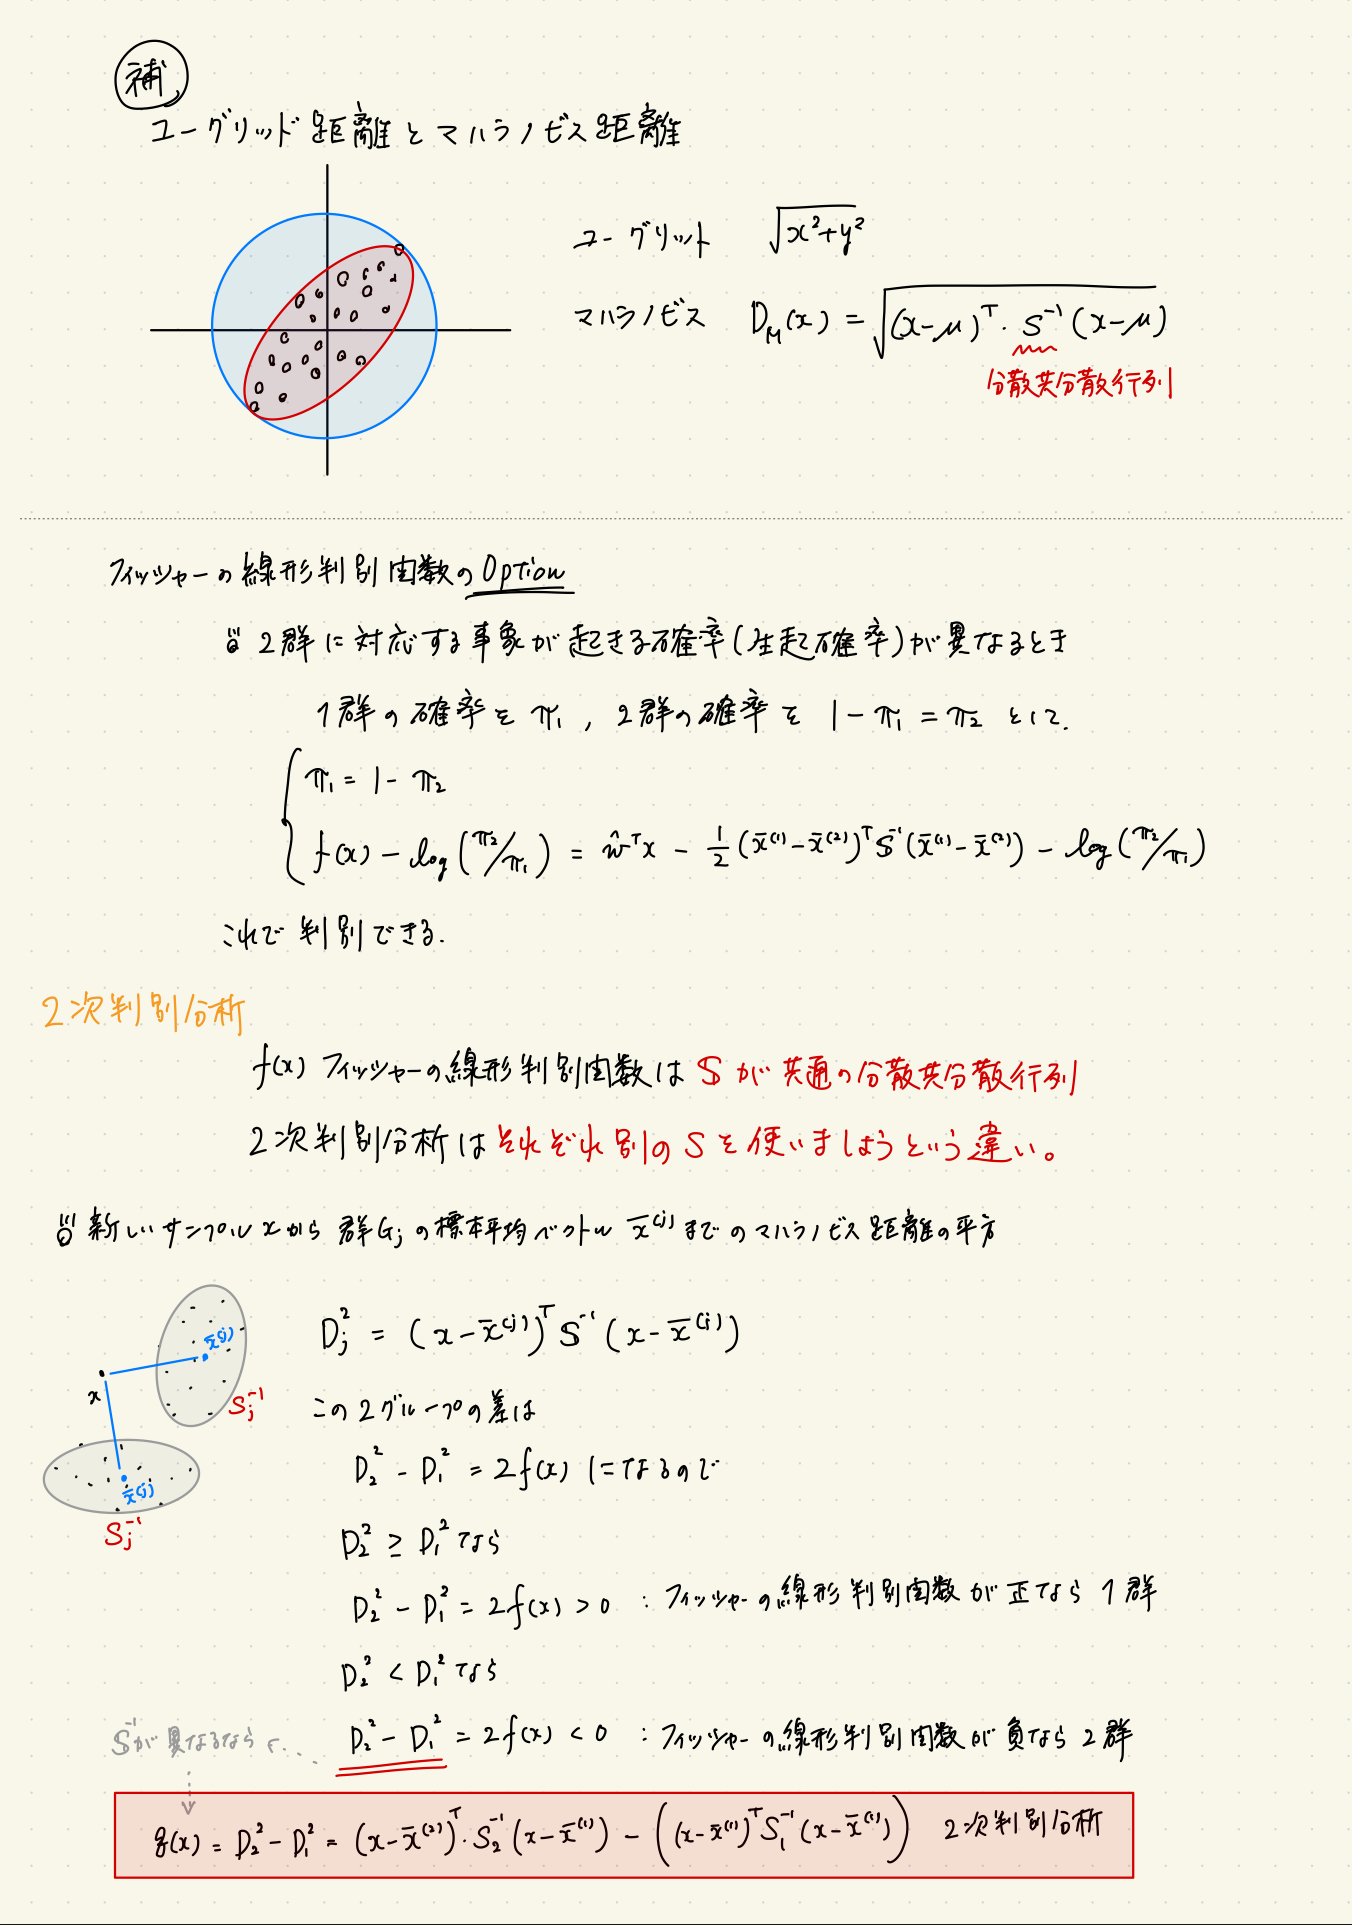 補
ユーグリッド距離とマハラノビス距離
ユーグリット √x²+y²
マハラノビス D_M(x) = √(x-μ)ᵀ・S⁻¹(x-μ)
分散共分散行列
フィッシャーの線形判別関数のOption
2群に対応する事象が起きる確率(生起確率)が異なるとき
1群の確率を π₁ , 2群の確率を 1-π₁ = π₂ として.
π₁ = 1 - π₂
f(x) - log(π₂/π₁) = ŵᵀx - 1/2 (x̄⁽¹⁾-x̄⁽²⁾)ᵀS⁻¹(x̄⁽¹⁾-x̄⁽²⁾) - log(π₂/π₁)
これで判別できる.
2次判別分析
f(x) フィッシャーの線形判別関数は S が共通の分散共分散行列
2次判別分析はそれぞれ別のSを使いましょうという違い。
新しいサンプルxから群Gⱼの標本平均ベクトル x̄⁽ʲ⁾までのマハラノビス距離の平方
x
x̄⁽ʲ⁾
Sⱼ⁻¹
x̄⁽ʲ⁾
Sⱼ⁻¹
Dⱼ² = (x-x̄⁽ʲ⁾)ᵀS⁻¹(x-x̄⁽ʲ⁾)
この2グループの差は
D₂² - D₁² = 2f(x) になるので
D₂² ≥ D₁² なら
D₂² - D₁² = 2f(x) > 0 : フィッシャーの線形判別関数が正なら 1群
D₂² < D₁² なら
S⁻¹が異なるなら
D₂² - D₁² = 2f(x) < 0 : フィッシャーの線形判別関数が負なら 2群
g(x) = D₂² - D₁² = (x-x̄⁽²⁾)ᵀ・S₂⁻¹(x-x̄⁽¹⁾) - ((x-x̄⁽¹⁾)ᵀS₁⁻¹(x-x̄⁽¹⁾)) 2次判別分析